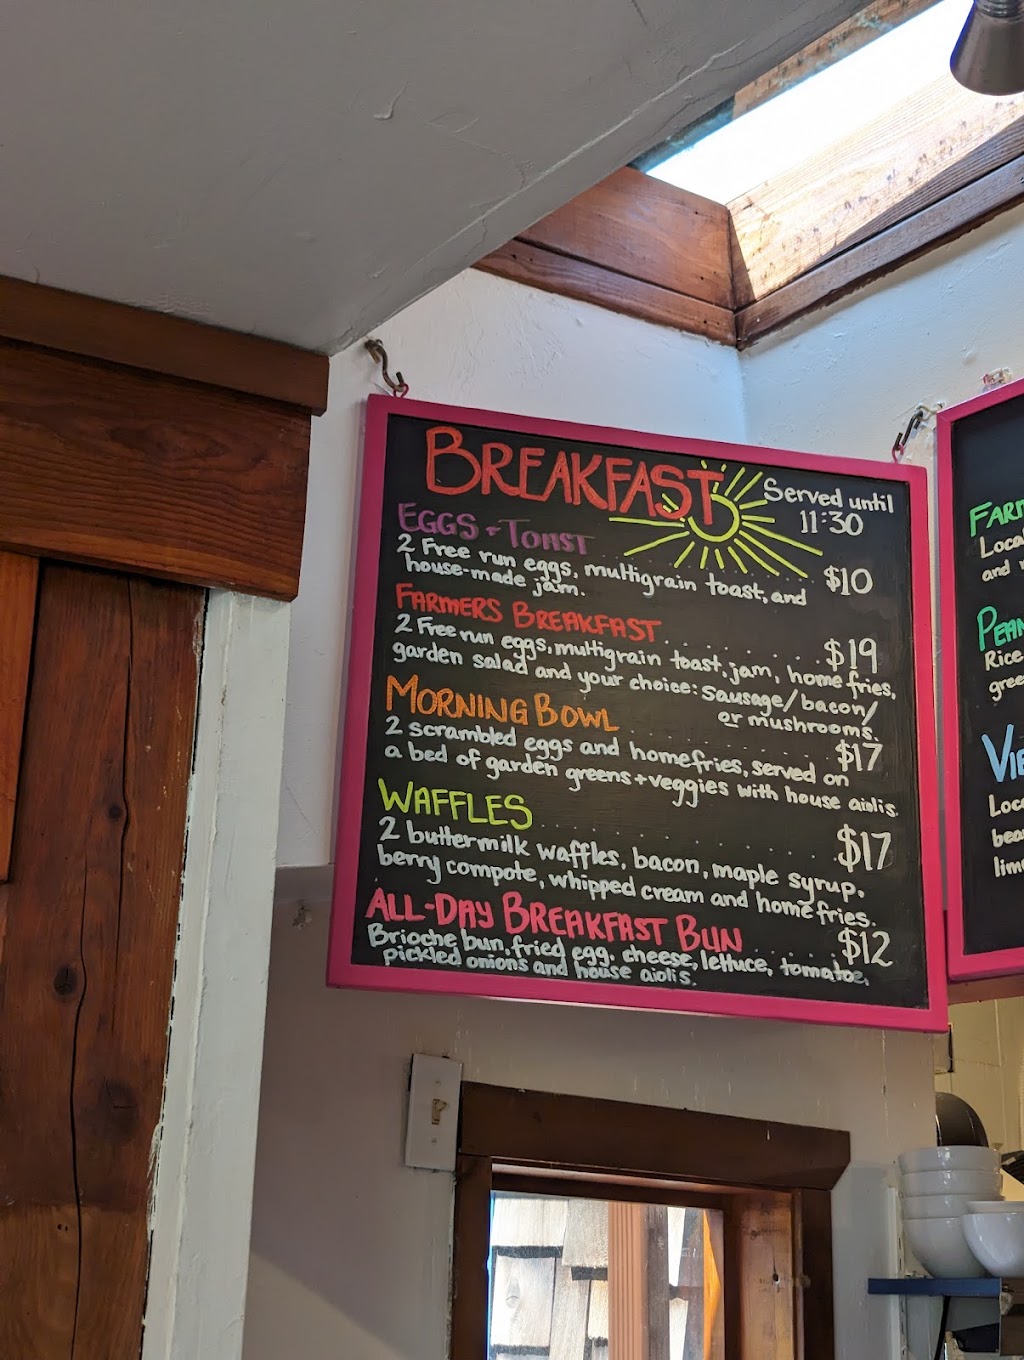 BREAKFAST
Served until
11:30
EGGS + TOAST ... $10
2 Free run eggs, multigrain toast, and
house-made jam.
FARMERS BREAKFAST ... $19
2 Free run eggs, multigrain toast, jam, home fries,
garden salad and your choice: sausage/bacon/
or mushrooms.
MORNING BOWL ... $17
2 scrambled eggs and homefries, served on
a bed of garden greens + veggies with house aiolis.
WAFFLES ... $17
2 buttermilk waffles, bacon, maple syrup,
berry compote, whipped cream and home fries.
ALL-DAY BREAKFAST BUN ... $12
Brioche bun, fried egg, cheese, lettuce, tomatoe,
pickled onions and house aiolis.
and
Rice